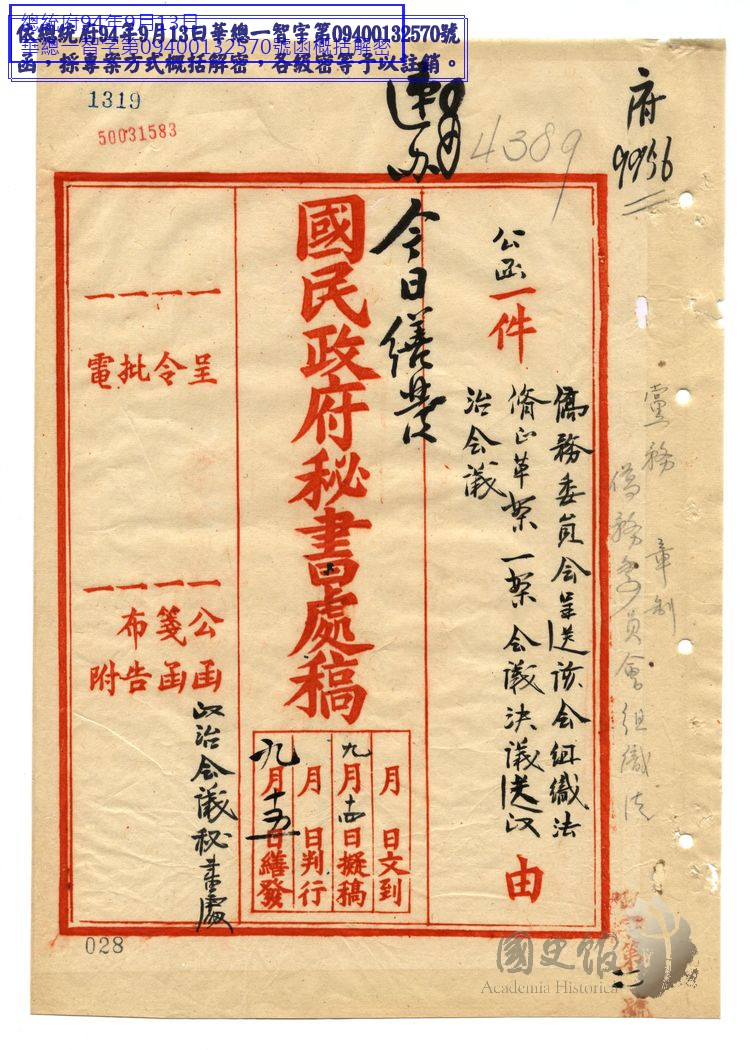 總統府94年9月13日
華總一智字第09400132570號函概括解密
依總統府94年9月13日華總一智字第09400132570號
函，採專案方式概括解密，各級密等予以註銷。
1319
50031583
4389
府
9956
黨務 章制
僑務委員會組織法
公函一件
僑務委員会呈送該会組織法
脩正草案一案会議決議送政
治会議
由
今日繕發
國民政府秘書處稿
月 日文到
九月十四日擬稿
月 日判行
九月十五日繕發
一呈
一令
一批
一電
一公函
一箋函
一布告
一附
政治会議秘書處
028
國史館
Academia Historica